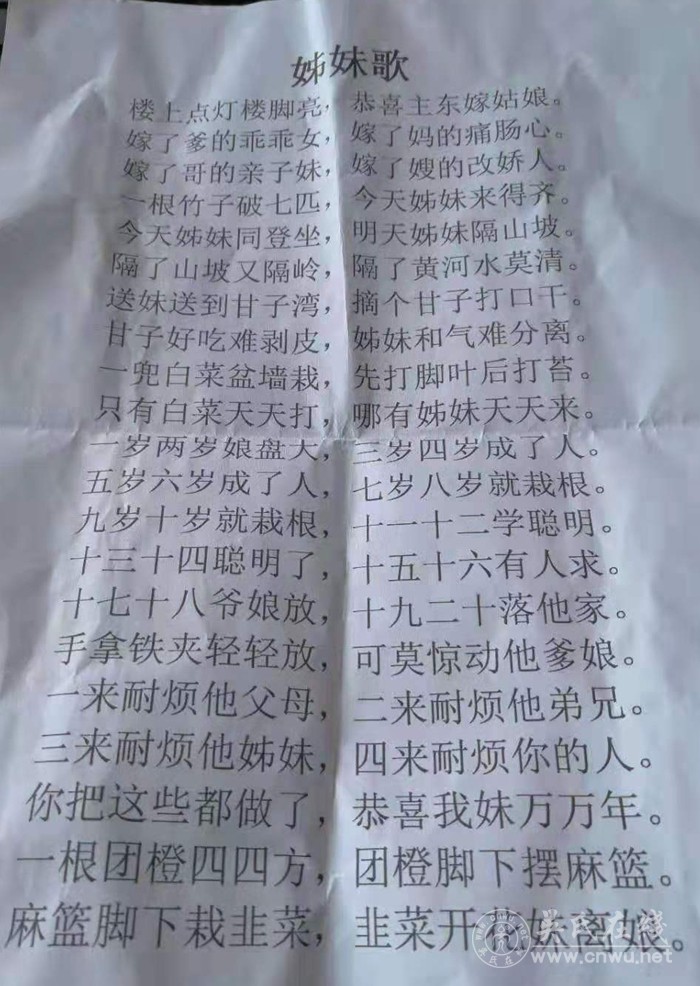 姊妹歌
楼上点灯楼脚亮，恭喜主东嫁姑娘。
嫁了爹的乖乖女，嫁了妈的痛肠心。
嫁了哥的亲子妹，嫁了嫂的改娇人。
一根竹子破七匹，今天姊妹来得齐。
今天姊妹同登坐，明天姊妹隔山坡。
隔了山坡又隔岭，隔了黄河水莫清。
送妹送到甘子湾，摘个甘子打口干。
甘子好吃难剥皮，姊妹和气难分离。
一兜白菜盆墙栽，先打脚叶后打苔。
只有白菜天天打，哪有姊妹天天来。
一岁两岁娘盘大，三岁四岁成了人。
五岁六岁成了人，七岁八岁就栽根。
九岁十岁就栽根，十一十二学聪明。
十三十四聪明了，十五十六有人求。
十七十八爷娘放，十九二十落他家。
手拿铁夹轻轻放，可莫惊动他爹娘。
一来耐烦他父母，二来耐烦他弟兄。
三来耐烦他姊妹，四来耐烦你的人。
你把这些都做了，恭喜我妹万万年。
一根团橙四四方，团橙脚下摆麻篮。
麻篮脚下栽韭菜，韭菜开花妹离娘。
吴氏在线
www.cnwu.net